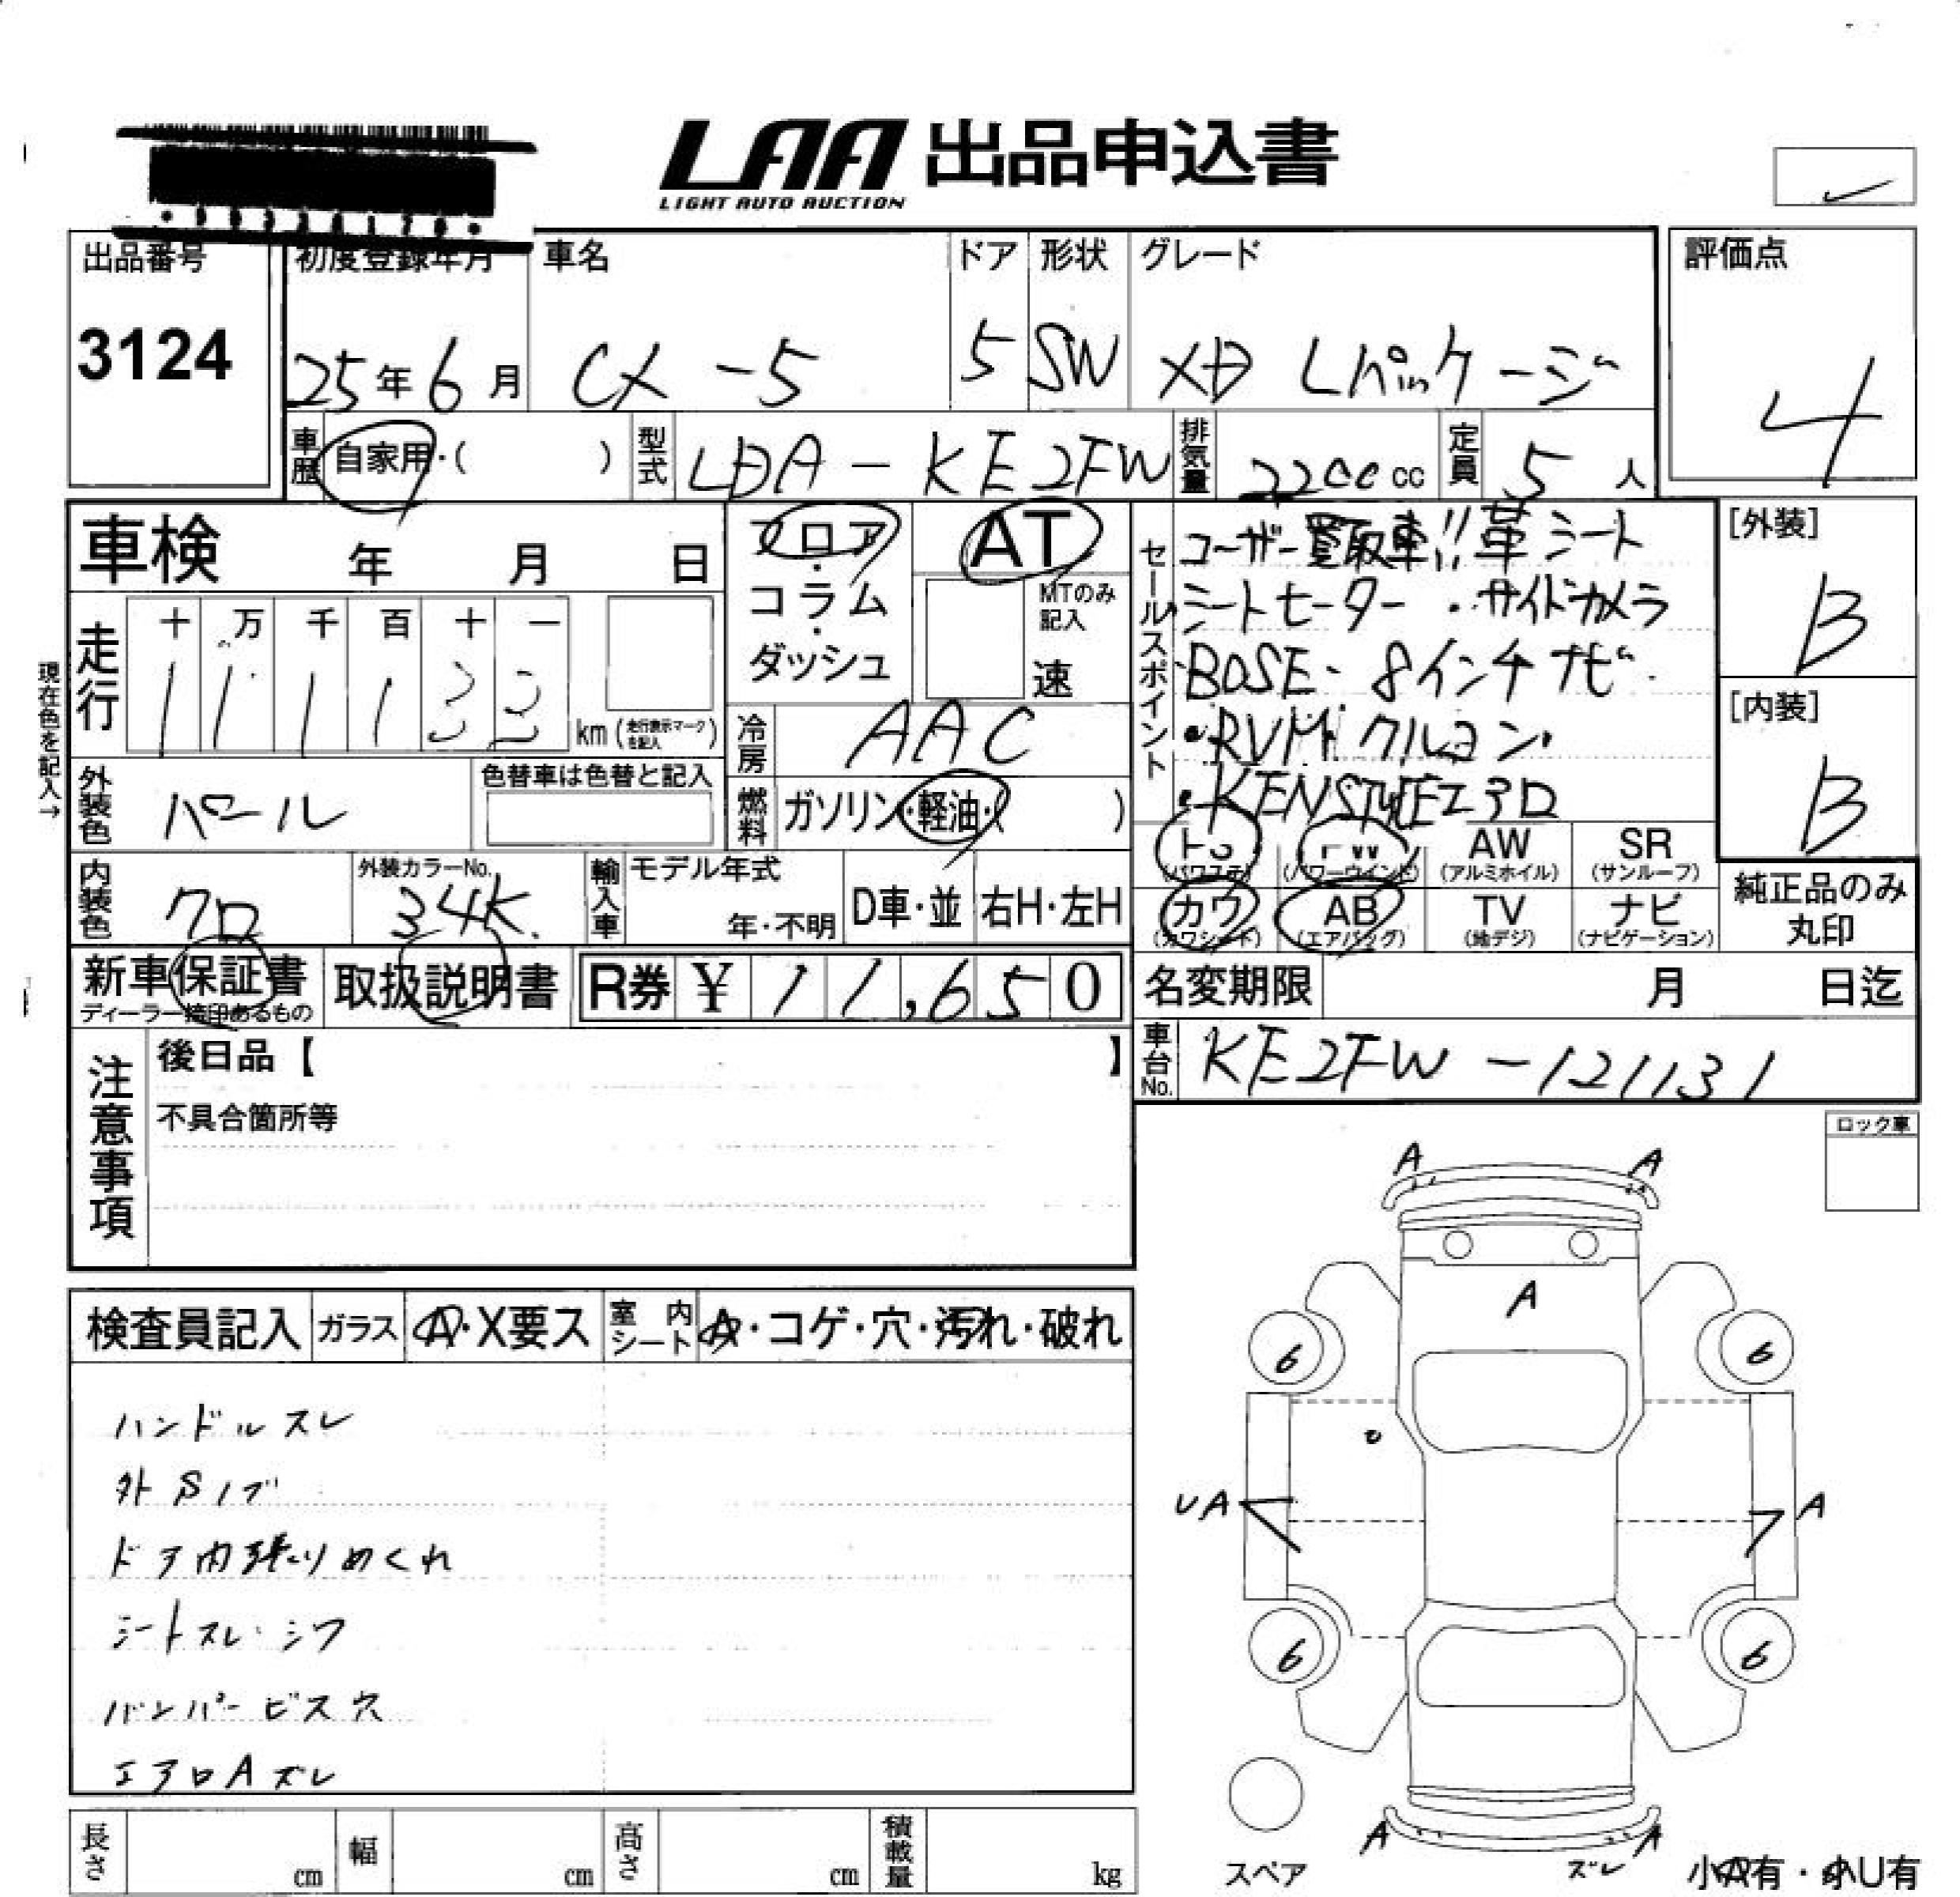 LAA 出品申込書
LIGHT AUTO AUCTION
出品番号 初度登録年月 車名 ドア 形状 グレード 評価点
3124 25年6月 CX-5 5 SW XD Lパッケージ 4
車歴 自家用・( ) 型式 LDA-KE2FW 排気量 22cc cc 定員 5 人
車検 年 月 日
フロア・コラム・ダッシュ
AT
MTのみ記入
速
セールスポイント
ユーザー買取車!!革シート
シートヒーター・サイドカメラ
BOSE・8インチナビ・
・RVM クルコン・
・KENSTYLEエアロ
[外装]
B
[内装]
B
現在色を記入→
走行 十 万 千 百 十 一
1 1 1 1 3 3 km (走行表示マークを記入)
冷房 AAC
外装色 パール 色替車は色替と記入
燃料 ガソリン・軽油・( )
PS PW AW SR
(パワステ) (パワーウインド) (アルミホイル) (サンルーフ)
カワ AB TV ナビ
(カワシート) (エアバッグ) (地デジ) (ナビゲーション)
純正品のみ
丸印
内装色 クロ 外装カラーNo. 34K 輸入車 モデル年式 年・不明 D車・並 右H・左H
新車保証書 取扱説明書 R券 ¥ 11,650
ディーラー捺印あるもの
名変期限 月 日迄
車台No. KE2FW-121131
注意事項
後日品【 】
不具合箇所等
ロック車
検査員記入 ガラス A・X要ス 室内シート A・コゲ・穴・汚れ・破れ
ハンドルスレ
ドア内張りめくれ
シートスレ・シワ
バンパービス穴
エアロAズレ
A A
A
6 6
UA A
6 6
A A
スペア ズレ 小A有・小U有
長さ cm 幅 cm 高さ cm 積載量 kg